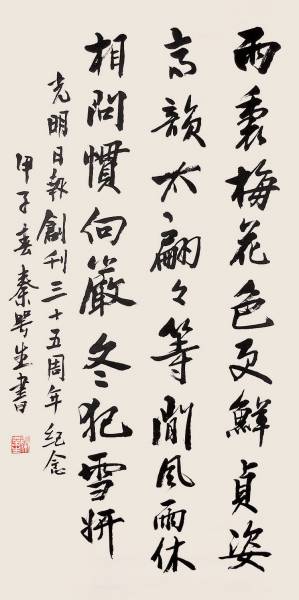 雨梅花色更鮮貞姿
高韻太翩々等閒風雨休
相問慣向嚴冬犯雪妍
光明日報創刊三十五周年紀念
甲子春秦咢生書